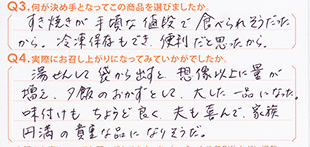 Q3.何が決め手となってこの商品を選びましたか。
すき焼きが手頃な値段で食べられそうだった
から。冷凍保存もでき、便利だと思ったから。
Q4.実際にお召し上がりになってみていかがでしたか。
湯せんして袋から出すと、想像以上に量が
増え、夕飯のおかずとして、大した一品になった。
味付けもちょうど良く、夫も喜んで、家族
円満の貴重な品になりそうだ。